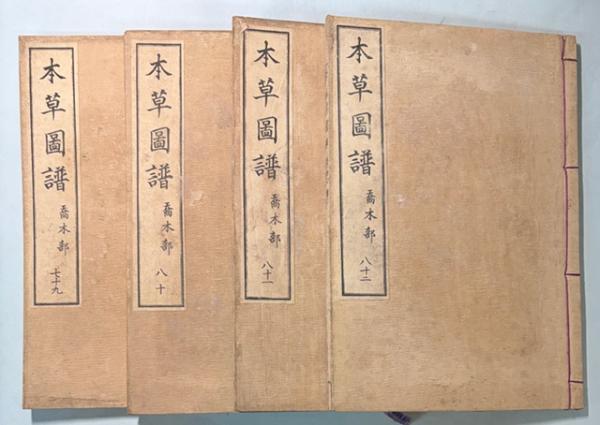 本草圖譜 喬木部 七十九
本草圖譜 喬木部 八十
本草圖譜 喬木部 八十一
本草圖譜 喬木部 八十二